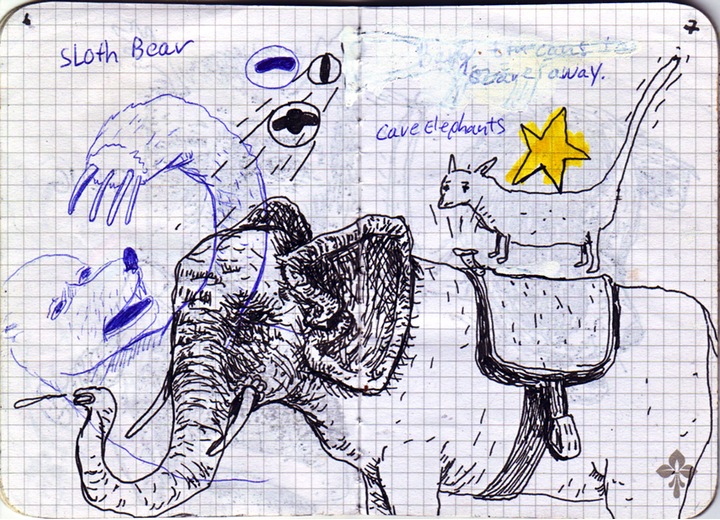 6
SLoth Bear
7
away.
Cave Elephants